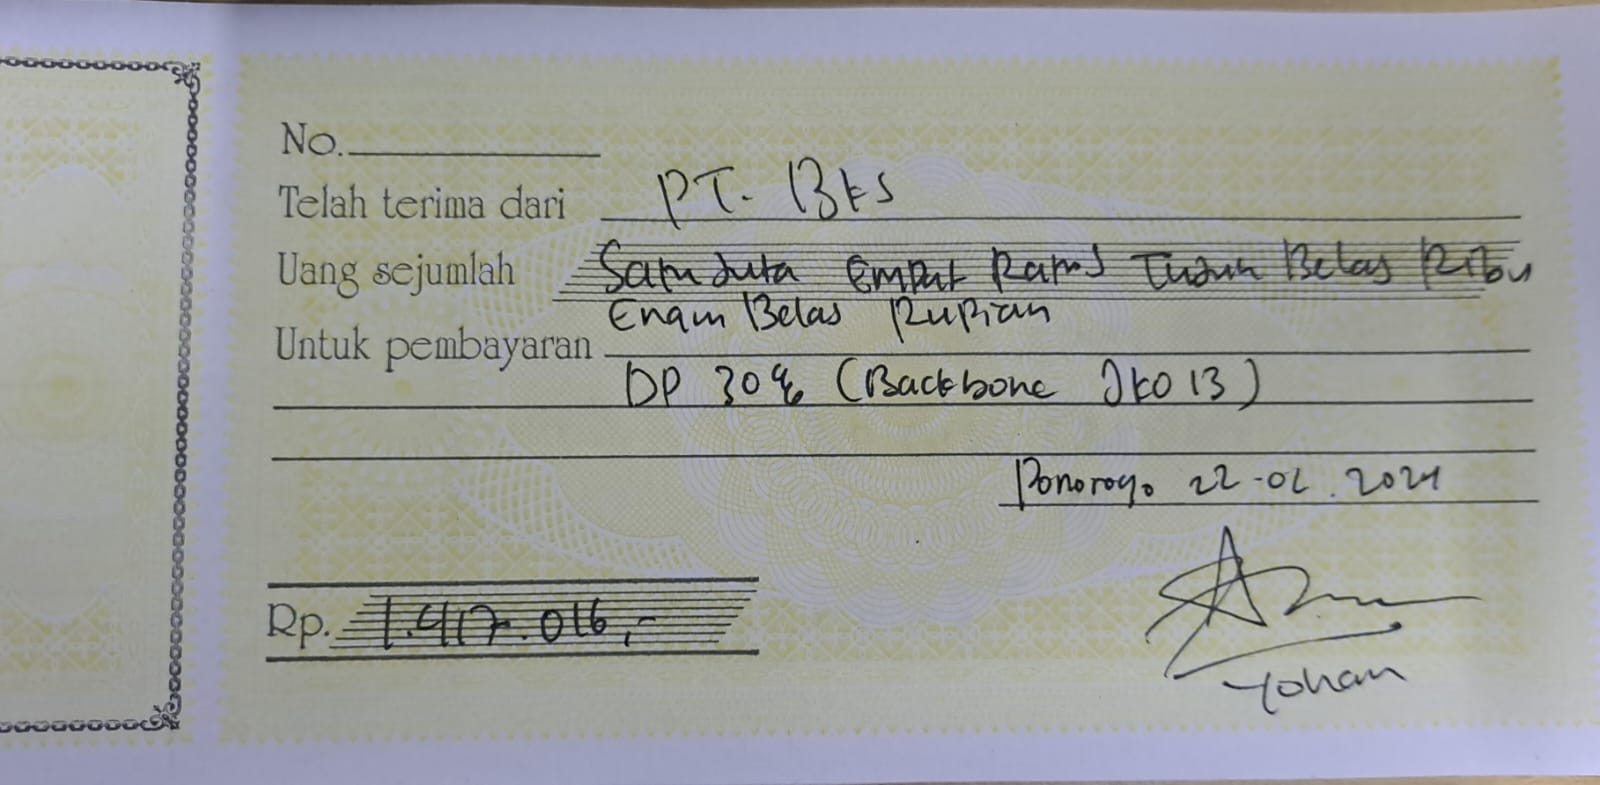 No.
Telah terima dari PT. BKS
Uang sejumlah Satu Juta Empat Ratus Tujuh Belas Ribu
Enam Belas Rupiah
Untuk pembayaran
DP 30% (Backbone JKO 13)
Ponorogo 22-02.2024
Rp. 1.417.016,-
Yohan